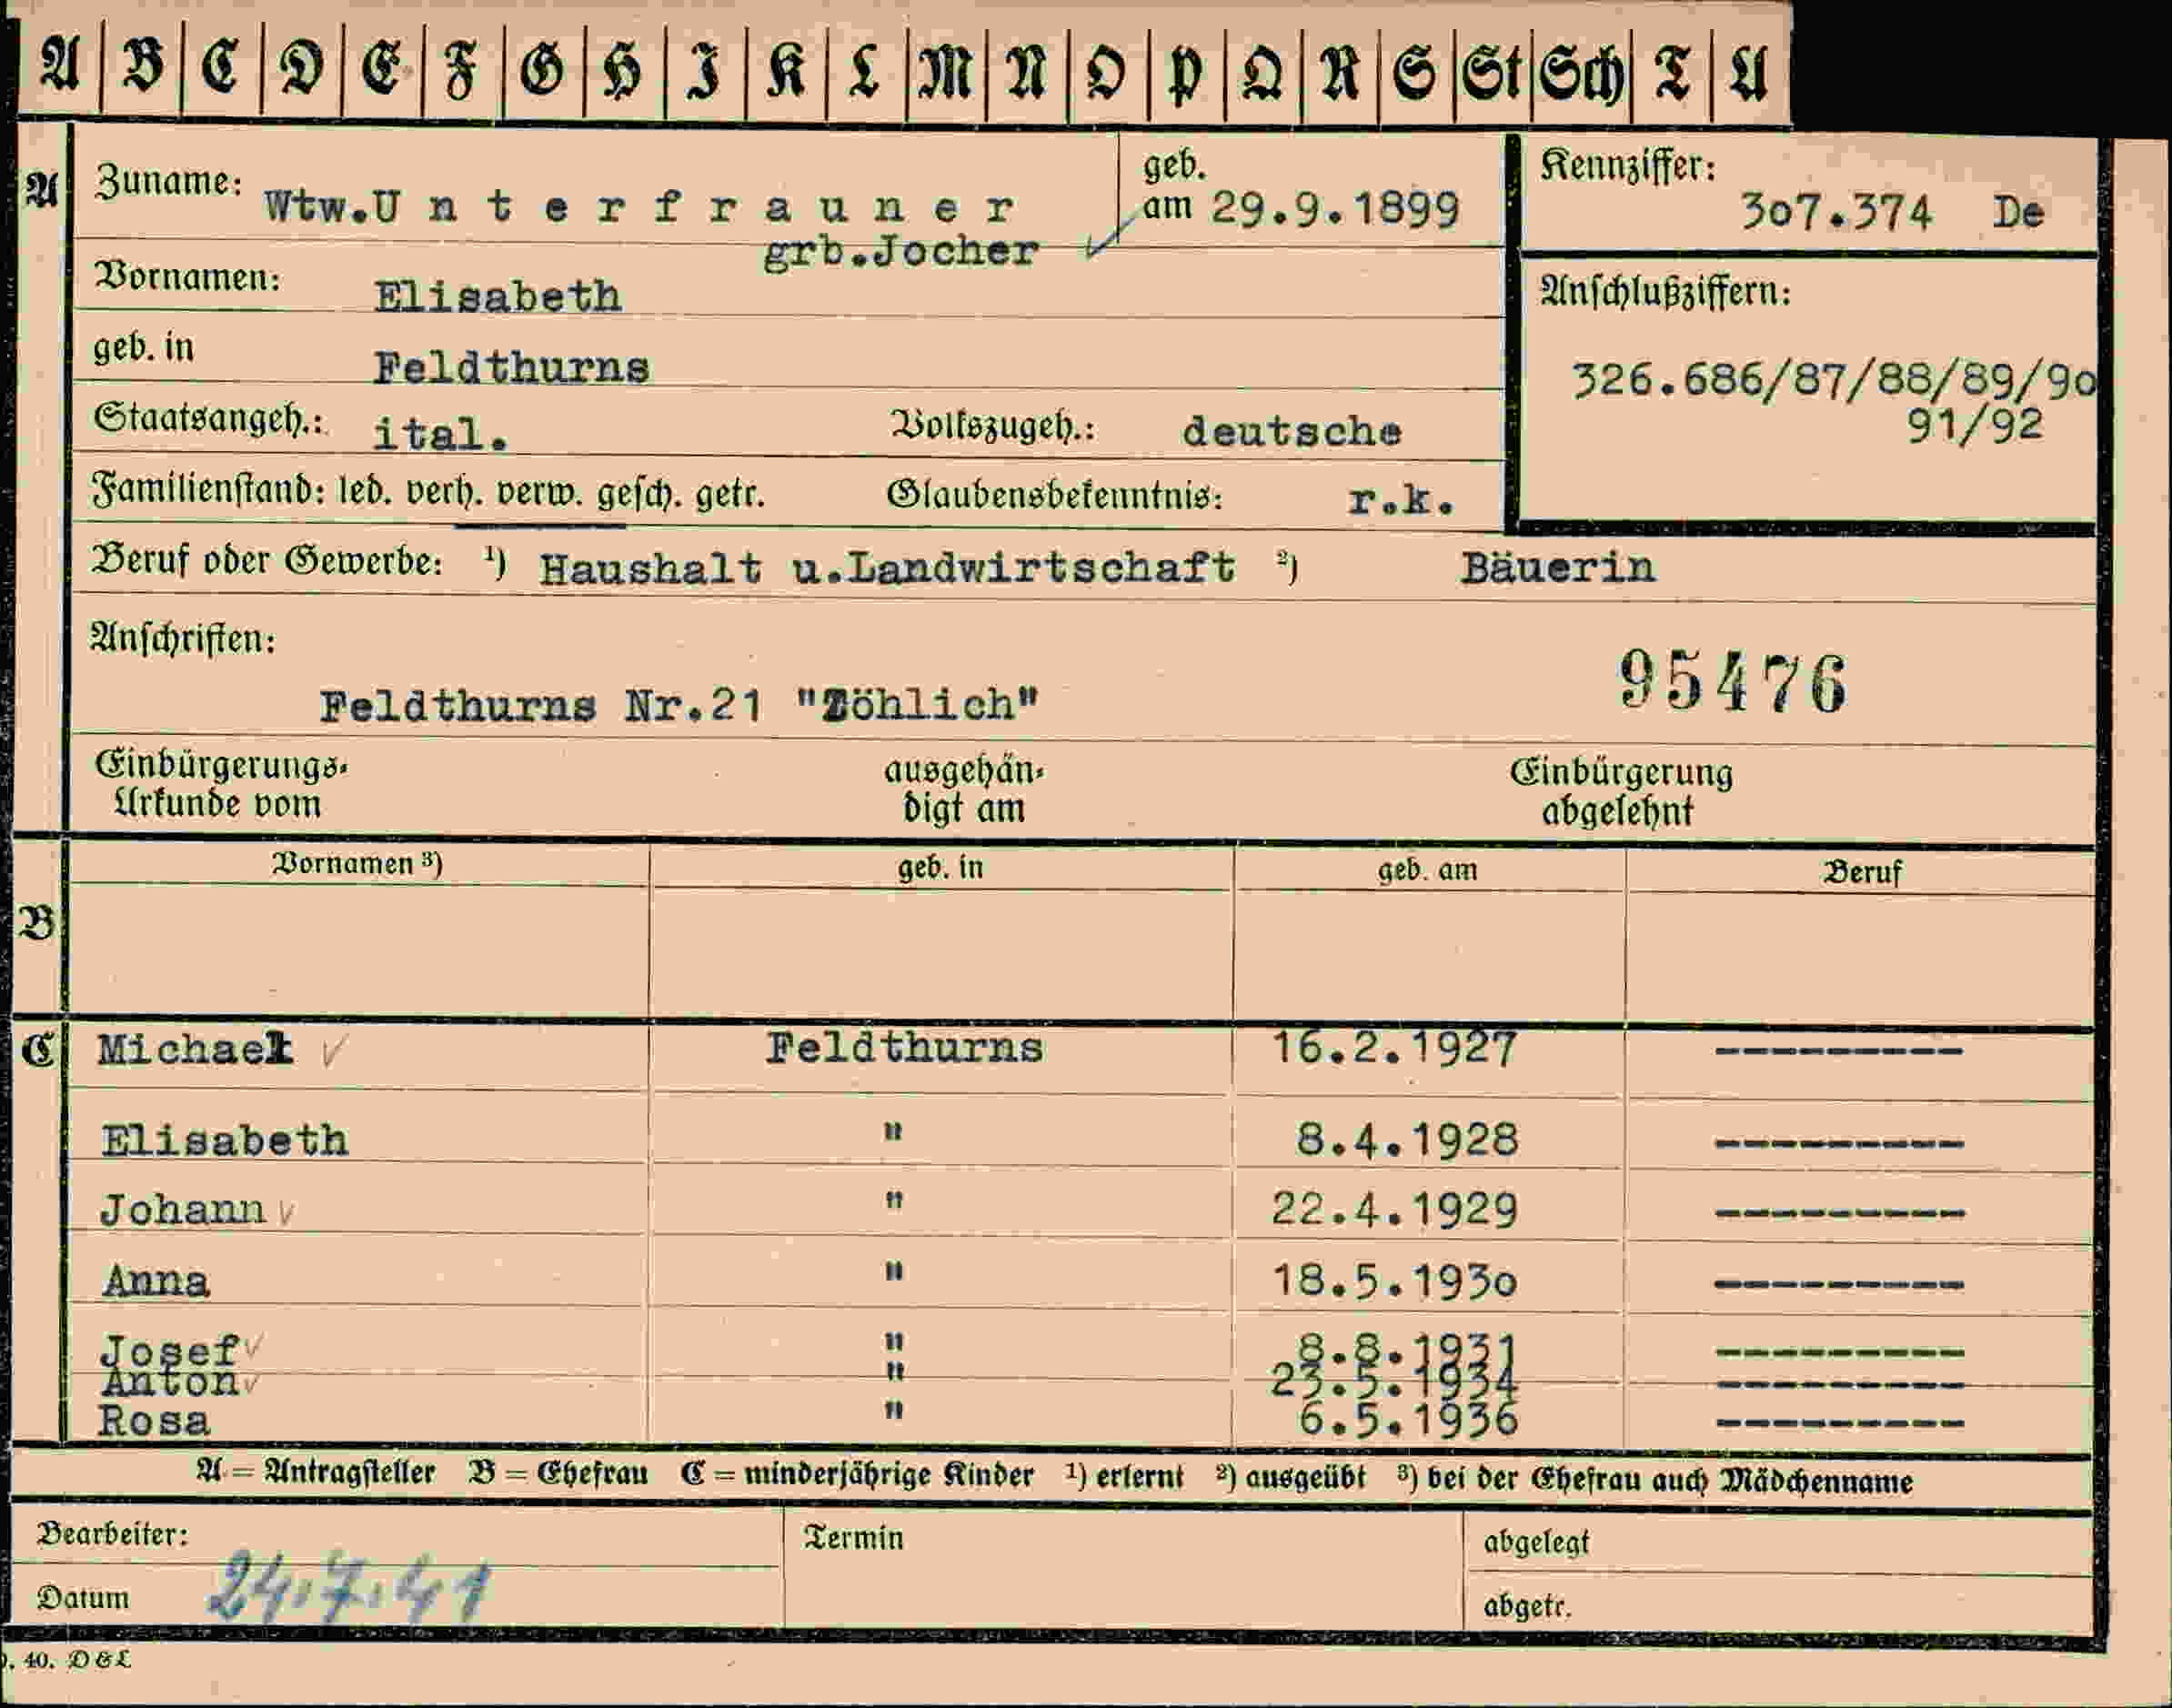 A B C D E F G H I K L M N O P Q R S St Sch T U
A Zuname: Wtw.U n t e r f r a u n e r geb. am 29.9.1899 Kennziffer: 3o7.374 De
grb.Jocher
Vornamen: Elisabeth Anschlußziffern:
geb. in Feldthurns 326.686/87/88/89/9o
Staatsangeh.: ital. Volkszugeh.: deutsche 91/92
Familienstand: led. verh. verw. gesch. getr. Glaubensbekenntnis: r.k.
Beruf oder Gewerbe: ¹) Haushalt u.Landwirtschaft ²) Bäuerin
Anschriften:
95476
Feldthurns Nr.21 "Zöhlich"
Einbürgerungs- ausgehän- Einbürgerung
Urkunde vom digt am abgelehnt
Vornamen ³) geb. in geb. am Beruf
B
C Michael Feldthurns 16.2.1927 ---------
Elisabeth " 8.4.1928 ---------
Johann " 22.4.1929 ---------
Anna " 18.5.193o ---------
Josef " 8.8.1931 ---------
Anton " 23.5.1934 ---------
Rosa " 6.5.1936 ---------
A = Antragsteller B = Ehefrau C = minderjährige Kinder ¹) erlernt ²) ausgeübt ³) bei der Ehefrau auch Mädchenname
Bearbeiter: Termin abgelegt
Datum 24.7.41 abgetr.
. 40. D & L